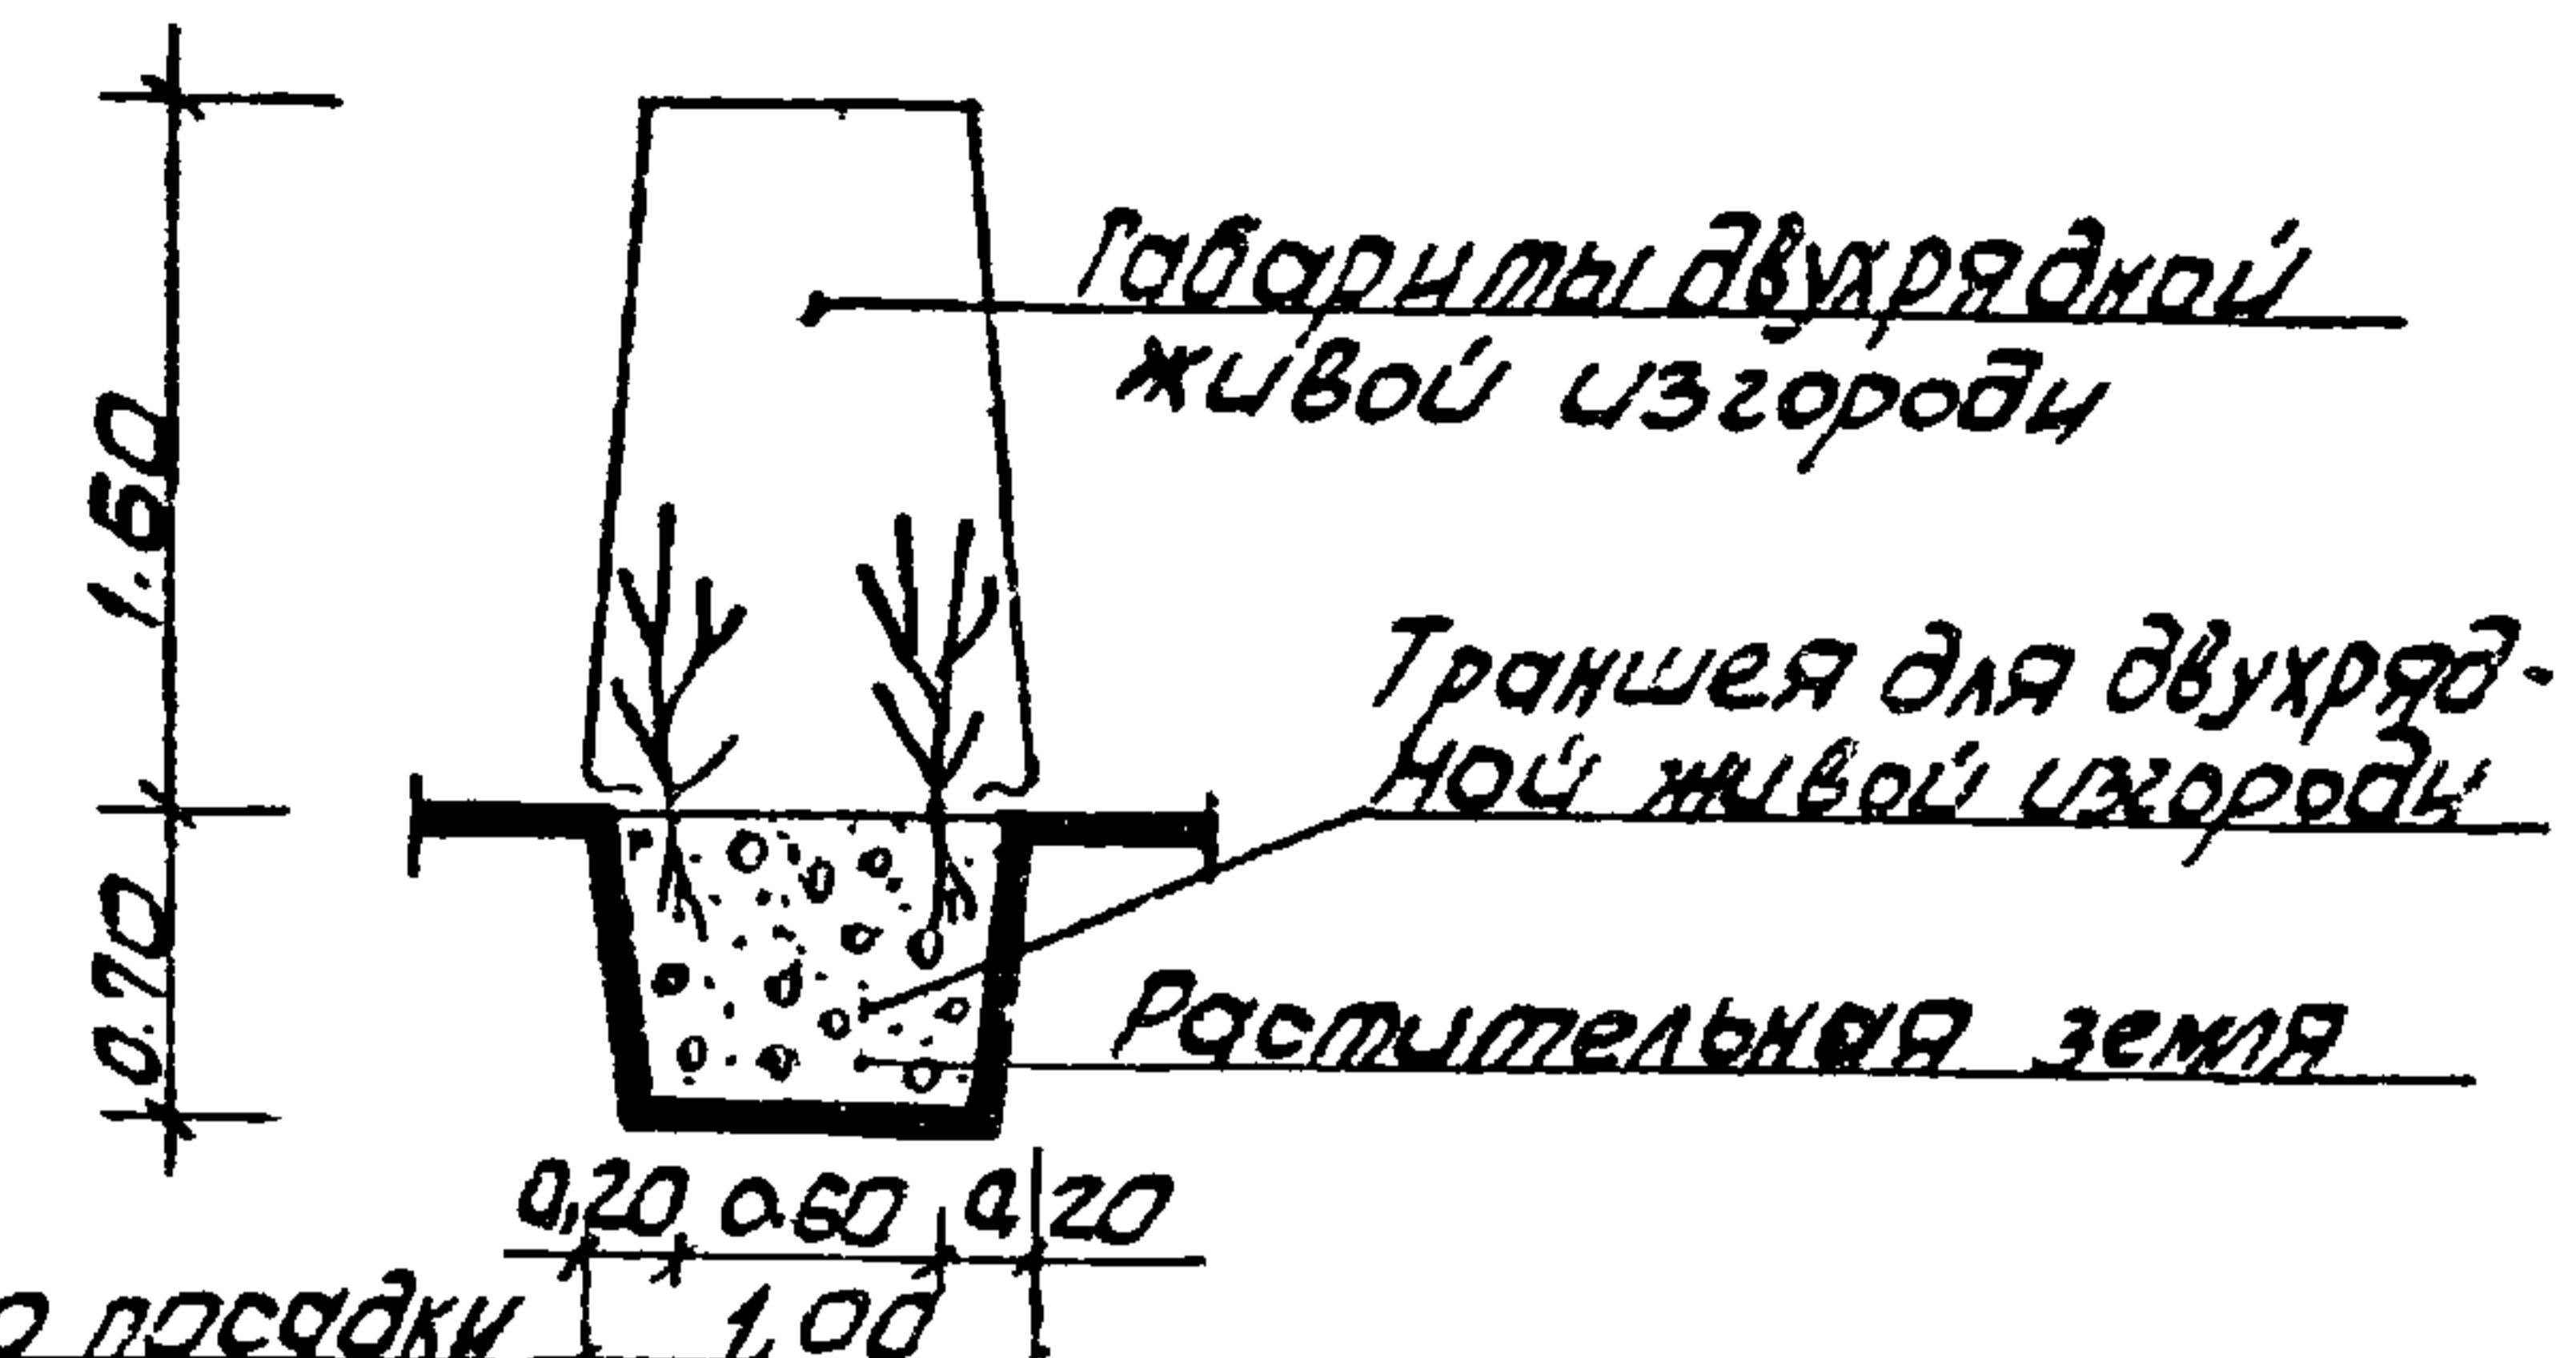 Габариты двухрядной
живой изгороди
1.60
Траншея для двухряд-
ной живой изгороди
0.70
Растительная земля
0,20 0.60 0.20
посадки 1,00